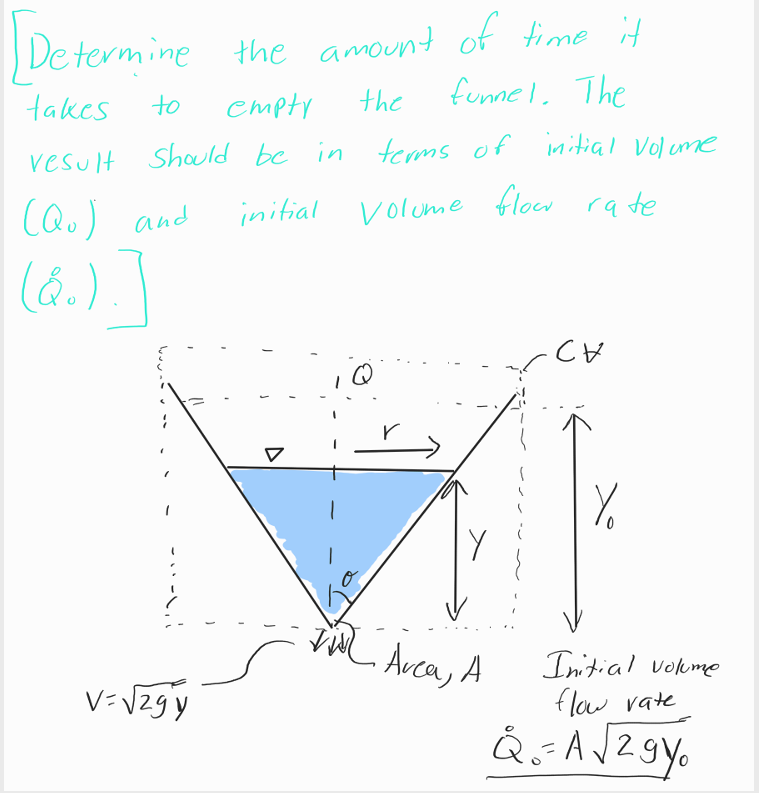 [Determine the amount of time it
takes to empty the funnel. The
result should be in terms of initial volume
(Q₀) and initial volume flow rate
(Q̊₀).]
C∀
Q
r
▽
y
y₀
θ
Area, A
V=√2gy
Initial volume
flow rate
Q̊₀=A√2gy₀